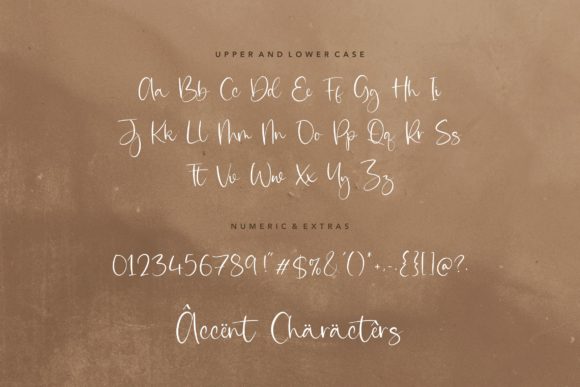 UPPER AND LOWER CASE
Aa Bb Cc Dd Ee Ff Gg Hh Ii
Jj Kk Ll Mm Nn Oo Pp Qq Rr Ss
Tt Vv Ww Xx Yy Zz
NUMERIC & EXTRAS
0123456789!"#$%&'()*+,-.{}[]@?.
Âccënt Chäräctêrs